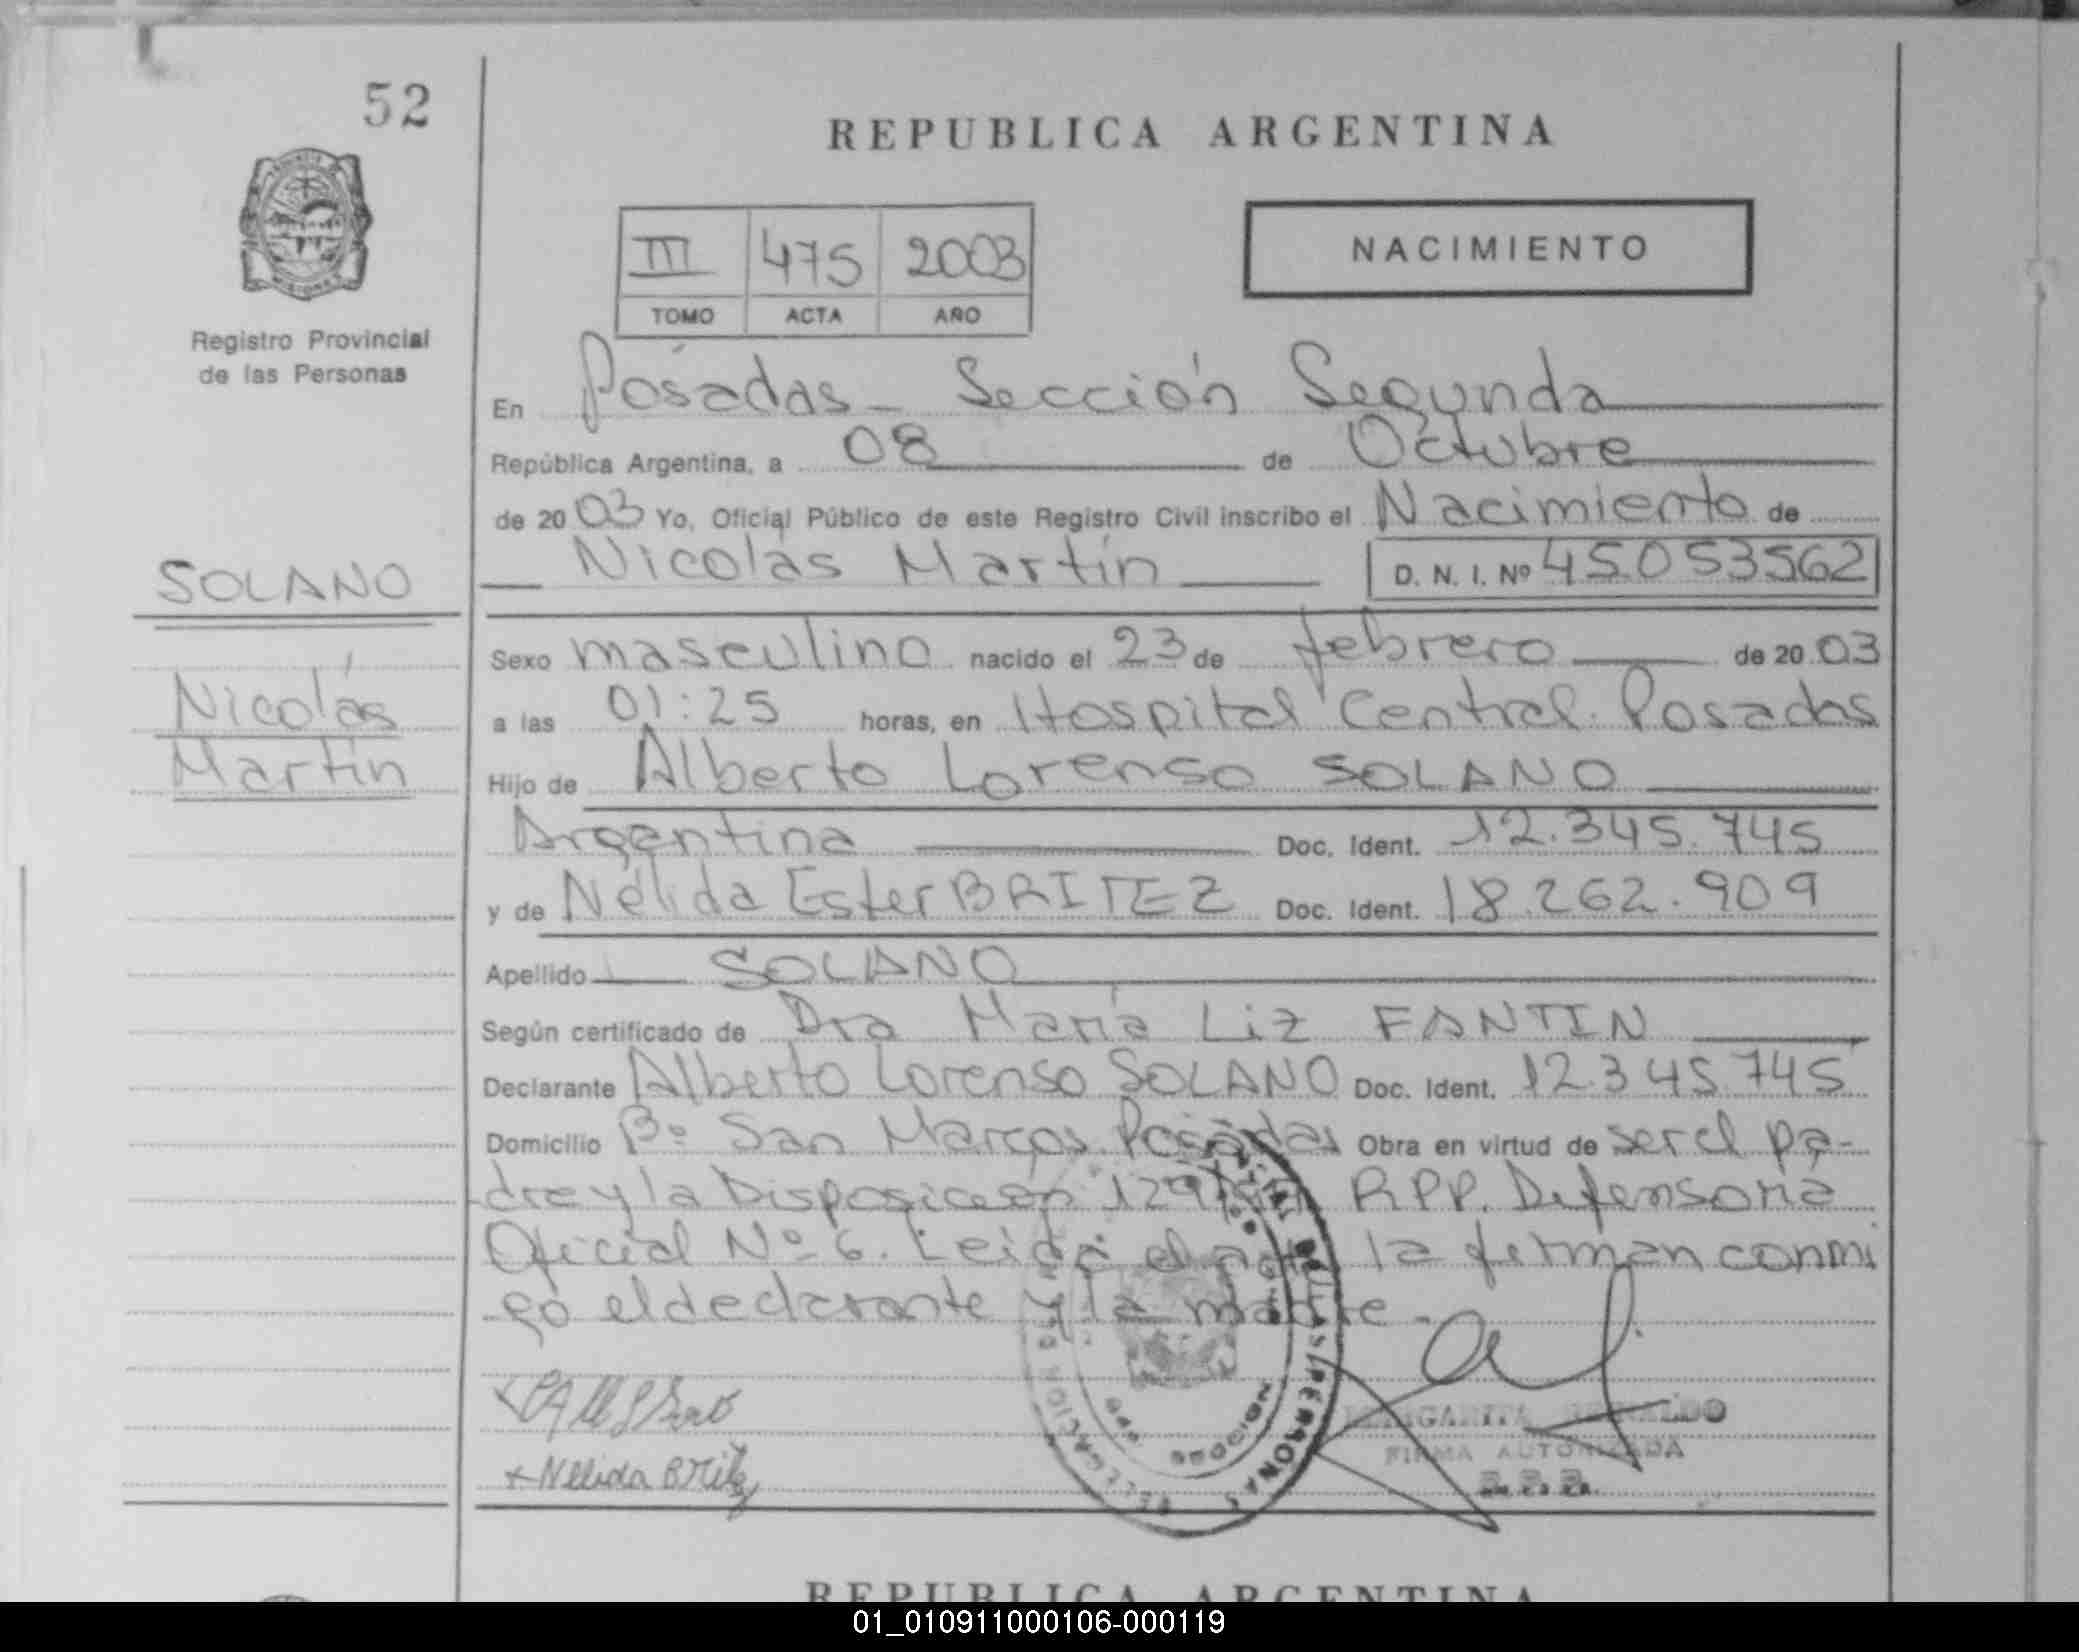 52
REPUBLICA ARGENTINA
III 475 2003
TOMO ACTA AÑO
NACIMIENTO
Registro Provincial
de las Personas
En Posadas - Sección Segunda
República Argentina, a 08 de Octubre
de 2003 Yo, Oficial Público de este Registro Civil inscribo el Nacimiento de
Nicolás Martín D. N. I. Nº 45053562
SOLANO
Nicolás
Martín
Sexo masculino nacido el 23 de febrero de 2003
a las 01:25 horas, en Hospital Central. Posadas
Hijo de Alberto Lorenso SOLANO
Argentina Doc. Ident. 12.345.745
y de Nélida Ester BRITEZ Doc. Ident. 18.262.909
Apellido SOLANO
Según certificado de Dra María Liz FANTIN
Declarante Alberto Lorenso SOLANO Doc. Ident. 12.345.745
Domicilio Bº San Marcos Posadas Obra en virtud de ser el pa-
dre y la Disposición RPP. Defensoria
Oficial Nº 6. Leida el la firman conmi
go el declarante y la madre.
Nelida Britez
MARGARITA
FIRMA AUTORIZADA
REPUBLICA ARGENTINA
01_010911000106-000119